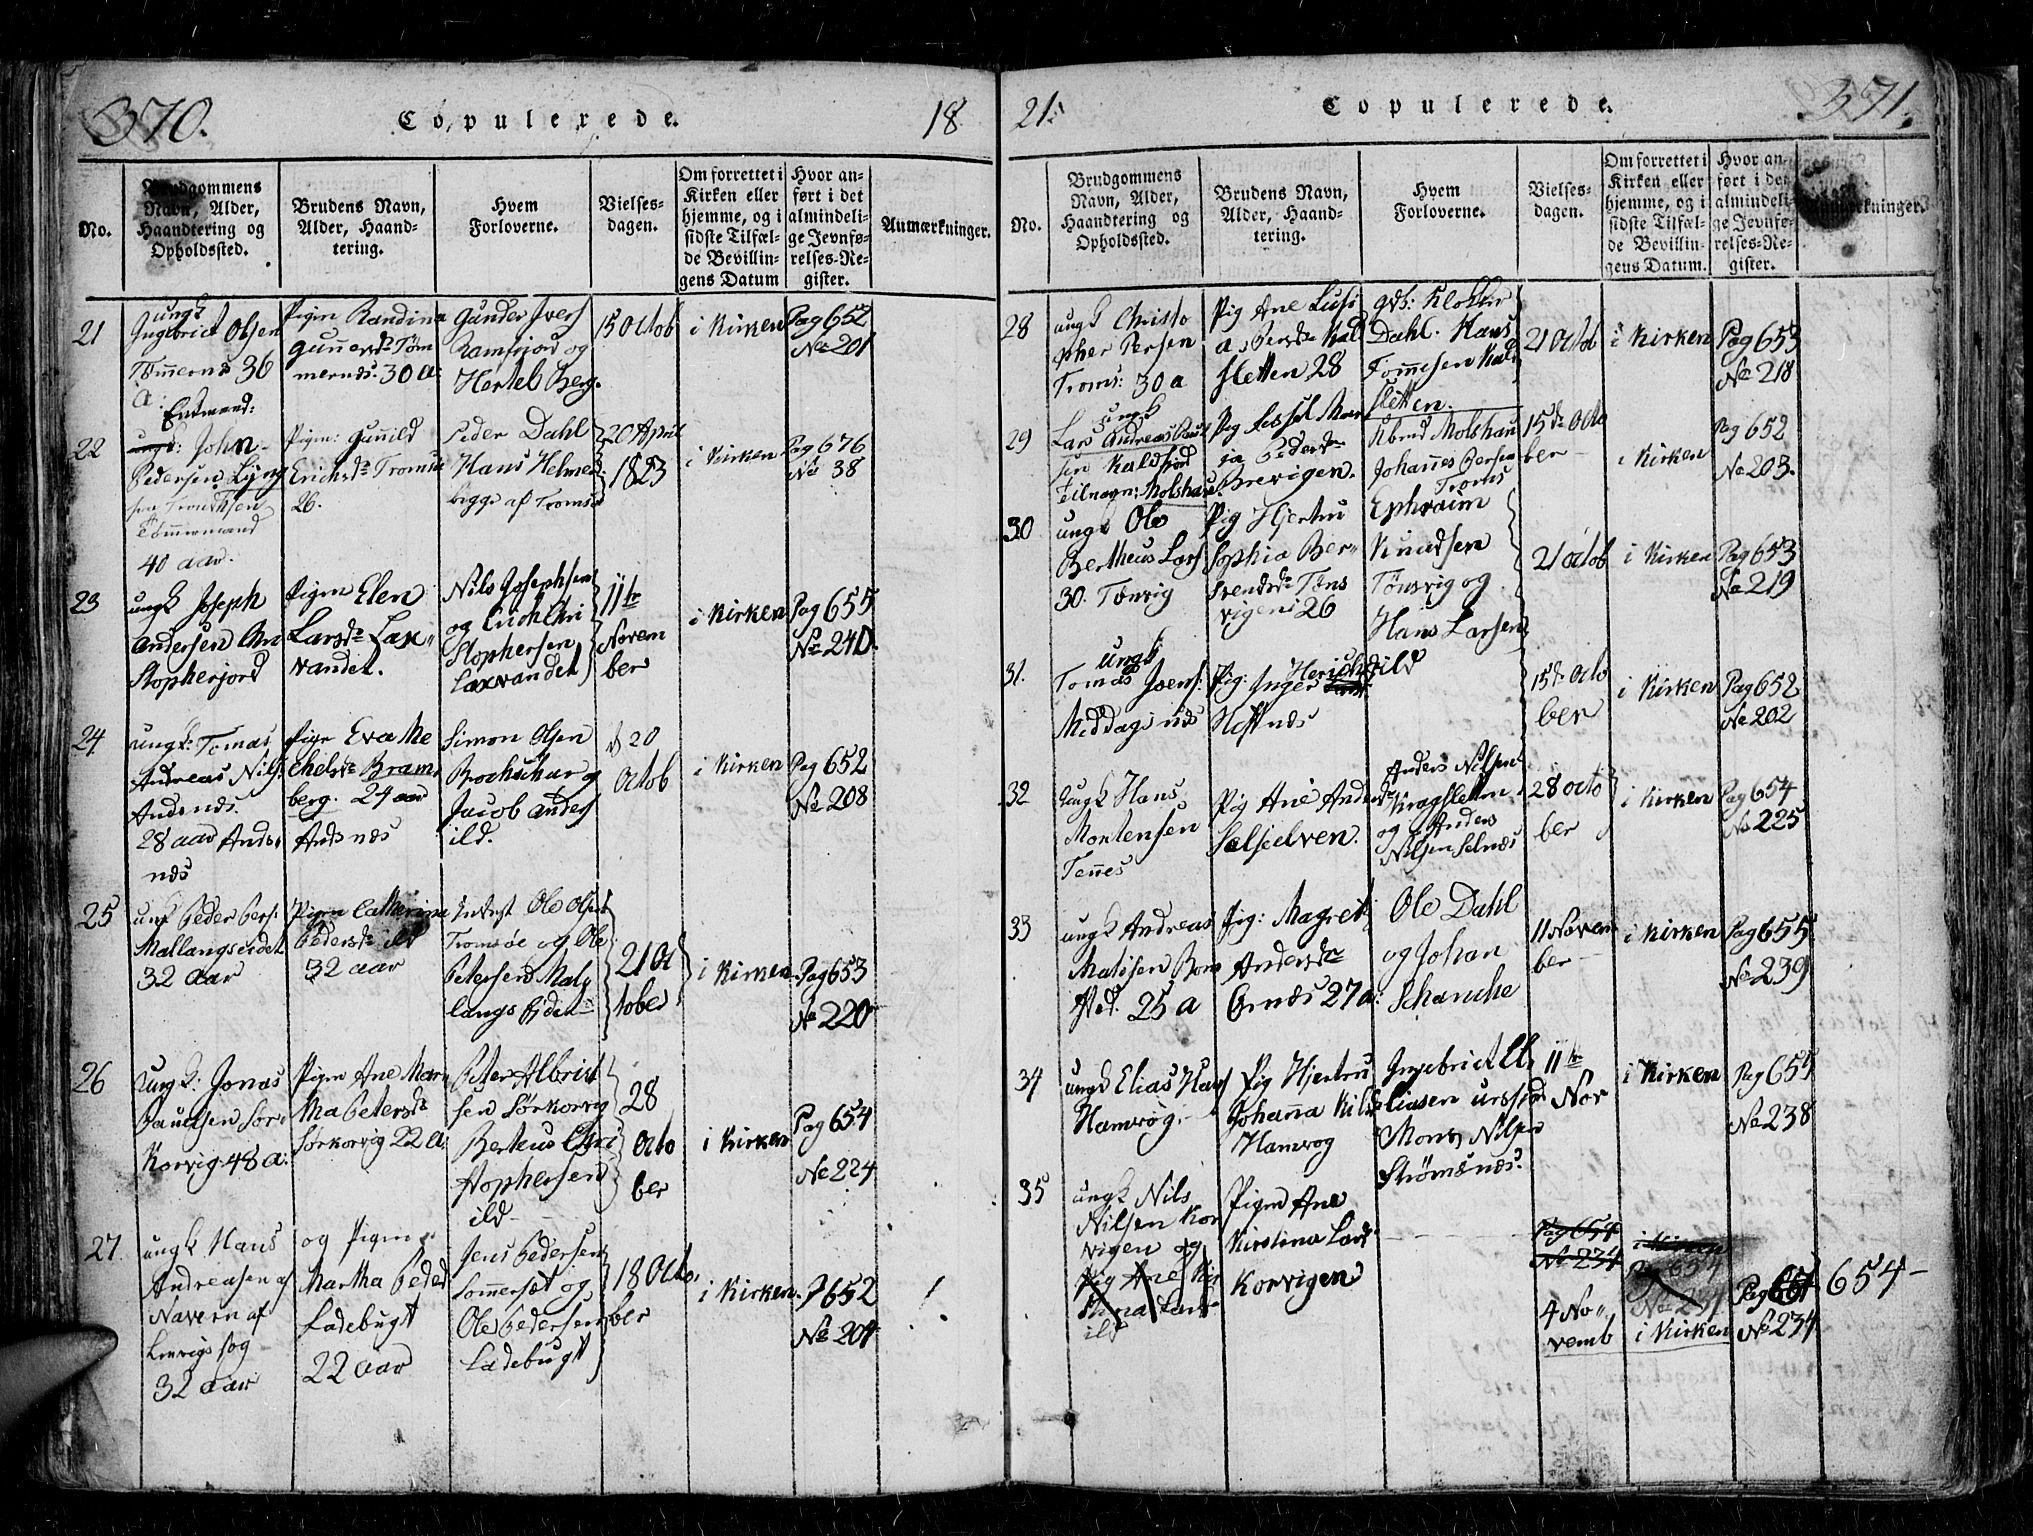 370.
Copulerede.
18
No.
Brudgommens
Navn, Alder,
Haandtering og
Opholdssted.
Brudens Navn,
Alder, Haand-
tering.
Hvem
Forloverne.
Vielses-
dagen.
Om forrettet i
Kirken eller
hjemme, og i
sidste Tilfæl-
de Bevillin-
gens Datum
Hvor an-
ført i det
almindeli-
ge Jevnfø-
relses-Re-
gister.
Anmærkninger.
21
ungk
Ingebrict Olsen
Tømernæs 36
a:
Pigen Randina
Gunnersdr Tøm
mernæs. 30 a:
Gunder Ivers
Ramfjord og
Hertel Berg.
15 Octob
i Kirken
Pag 652
No 201
22
Enkmand:
John
Pedersen Lyng
Tømermand
40 aar.
Pigen: Gunild
Erichsdr Tromsø
26.
Peder Dahl
Hans Helmer
begge af Tromsø
20 April
1823
i Kirken
Pag 676
No 38
23
ungk Joseph
Andersen Chri
stopherjord
Pigen Elen
Larsdr Lax„
vandet.
Nils Josephsen
og Chri
stophersen
Laxvandet
11te
Novem
ber
i Kirken
Pag 655
No 240.
24
ungk: Tomas
Andreas Nils:
Andsnæs.
28 aar Ands„
næs
Pige Eva Me
chelsdr Bram
berg. 24 aar
Andsnæs
Simon Olsen
Brochskar og
Jacob Anders
ild.
d 20
Octob
i Kirken
Pag 652
No 208
25
ungk Peder Pers:
Mallangseidet
32 aar
Pigen Catherina
Pedersdr ild
32 aar
Ole Olsen
Tromsøe og Ole
Petersen Mal„
langs Eidet
21 Oc
tober
i Kirken
Pag 653
No 220
26
ungk: Jonas
Paulsen Sør„
Korvig 48 a:
Pigen Ane Mar„
tha Petersdr
Sørkorvig 22 a:
Peter Albrict
sen Sørkorvig
Berteus Chri
stophersen
ild
28
Octo
ber
i Kirken
Pag 654
No 224
27.
ungk Hans
Andreasen af
Navern af
Lenvigs sog
32 aar
og Pigen
Martha Peders
Ladebugt
22 aar
Jens Pedersen
Sommersæt og
Ole Pedersen
Ladebugt
18 Octo„
ber
i Kirken
P 652
No 204
21.
Copulerede.
371.
No.
Brudgommens
Navn, Alder,
Haandtering og
Opholdssted.
Brudens Navn,
Alder, Haand-
tering.
Hvem
Forloverne.
Vielses-
dagen.
Om forrettet i
Kirken eller
hjemme, og i
sidste Tilfæl-
de Bevillin-
gens Datum.
Hvor an-
ført i det
almindeli-
ge Jevnfø-
relses-Re-
gister.
Anmærkninger.
28
ungk Christo
pher Persen
Troms: 30 a
Pig Ane Lusi
a Persdr Kal
sletten 28
Klokker
Dahl. Hans
Tommesen Kal
sletten.
21 Octob
i Kirken
Pag 653
No 218
29
ungk
Lars Andreas Paul
sen Kaldfjord
Tilnavn: Molshau
Pig Lissel Mar
ja Pedersdr
Brevigen.
Molshau
Johannes Persen
Troms
15de Octo
ber
i Kirken
Pag 652
No 203.
30
ungk Ole
Bertheus Lars
30. Tønvig
Pig Hjertru
Sophia Ber„
Svendsdr Tøns
vigen: 26
Ephraim
Knudsen
Tønsvig og
Hans Larsen
21 Octob
i Kirken
Pag 653
No 219
31.
ungk
Tomas Joens:
Middagsnæs
Pig: Inger Herichsd
Heftnæs
ild
15de Octo
ber
i Kirken
Pag 652
No 202
32
Ungk Hans
Mortensen
Tennes
Pig Ane Andersdr
Sælsjelven.
Anders Nilsen
Kragsletten
og Anders
Nilsen Selnæs
28 Octo
ber
i Kirken
Pag 654
No 225
33
ungk Andreas
Matisen Bom
sted. 25 a
Pig: Magret
Andersdr
Ornæs 27 a:
Ole Dahl
og Johan
Schanche
11 Novem
ber
i Kirken
Pag 655
No 239
34
ungk Elias Hans
Hamvog.
Pig Hjertru
Johanna Nilsd
Hamvog
Ingebrict El
liasen
Mons Nilsen
Strømsnæs.
11te
Nov
i Kirken
Pag 655
No 238
35
ungk Nils
Nilsen Kor
vigen og
Pig Ane Kir
stina Lars
ild
Pigen Ane
Kirstina Lars
Korvigen
Pag 654
No 234
4 No„
vemb
i Kirken
Pag 654
No 234
i Kirken
Pag 651
No 234
654